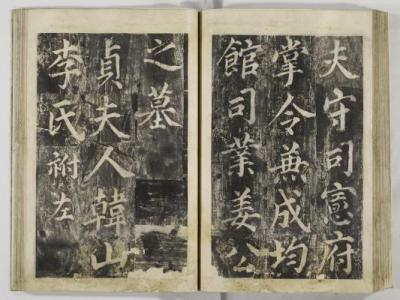 夫守司憲府
掌令兼成均
館司業姜公
之墓
貞夫人韓山
李氏祔左